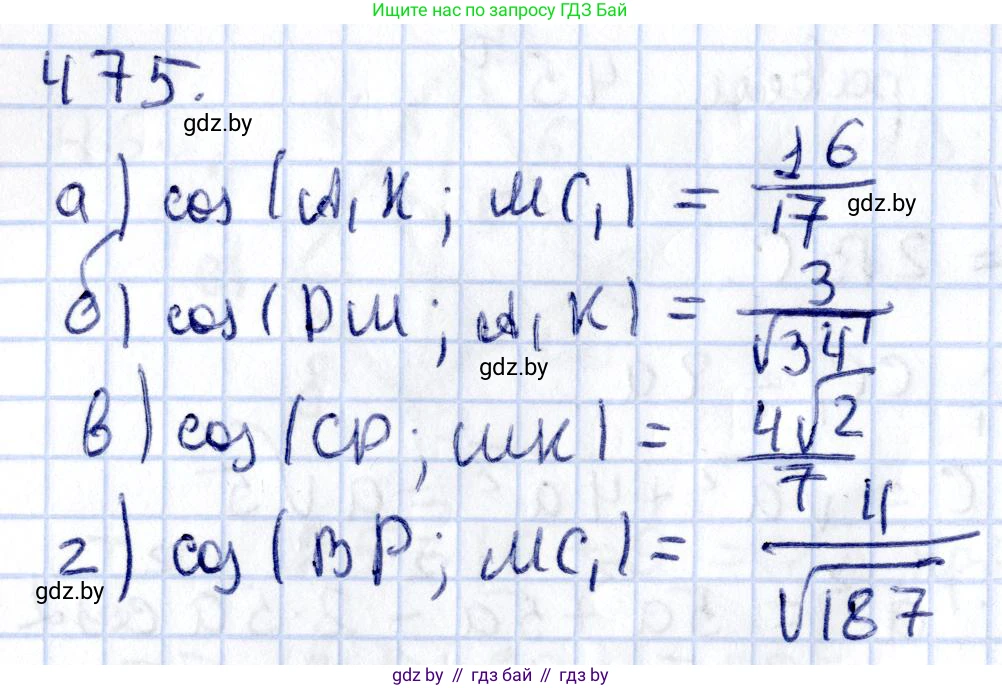 Ищите нас по запросу ГДЗ Бай
475.
gdz.by
а) cos (A₁K ; MC₁) = 16/17
gdz.by
б) cos (DM ; A₁K) = 3/√34
gdz.by
в) cos (CP ; MK) = 4√2/7
г) cos (BP ; MC₁) = 4/√187
gdz.by
gdz.by // гдз бай // gdz.by